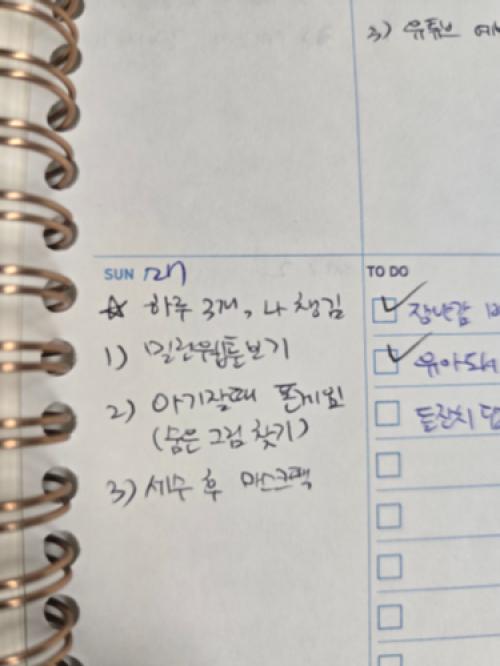 3) 유튜브
SUN
☆ 하루 3개, 나 챙김
1) 밀린웹툰보기
2) 아기잘때 폰게임
(숨은 그림 찾기)
3) 세수 후 마스크팩
TO DO
장난감
유아도서
돌잔치 답